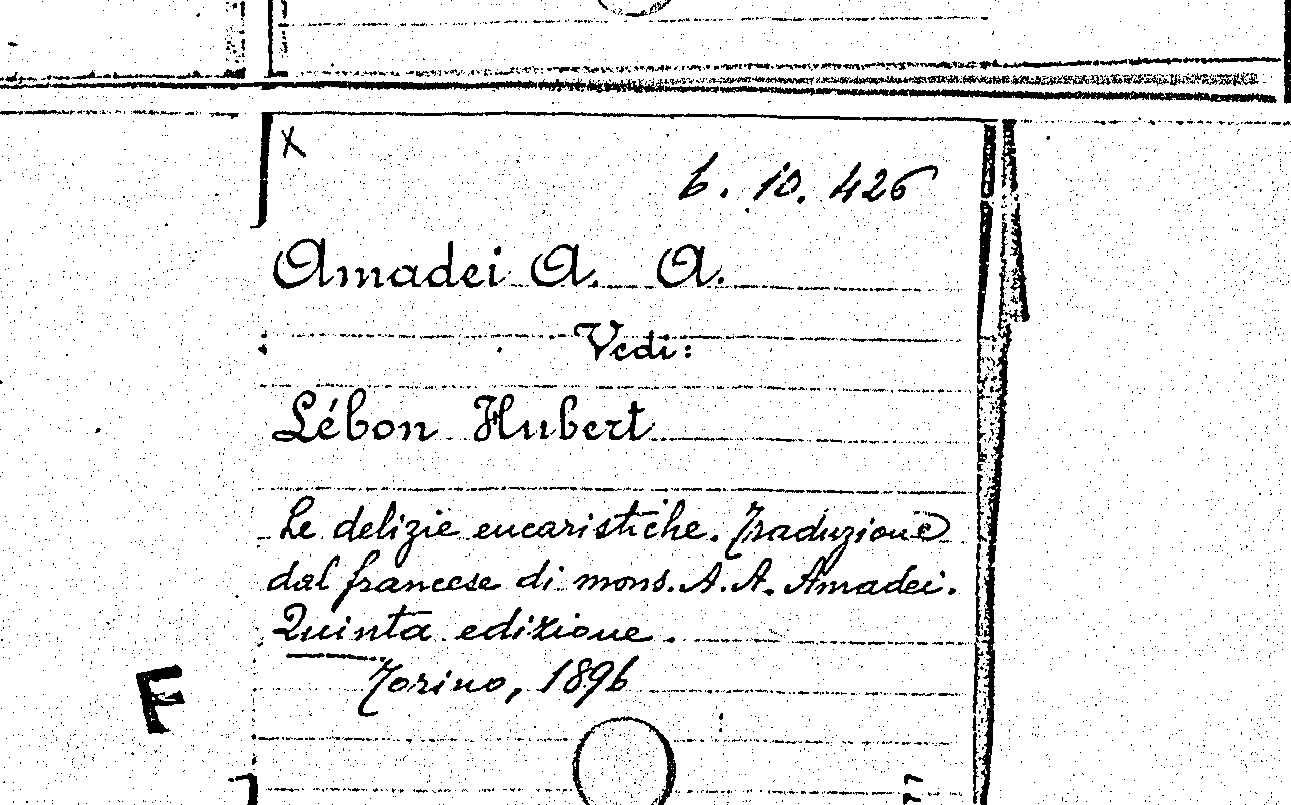 x
6. 10. 426
Amadei A. A.
Vedi:
Lébon Hubert
Le delizie eucaristiche. Traduzione
dal francese di mons. A. A. Amadei.
Quinta edizione.
Torino, 1896
F